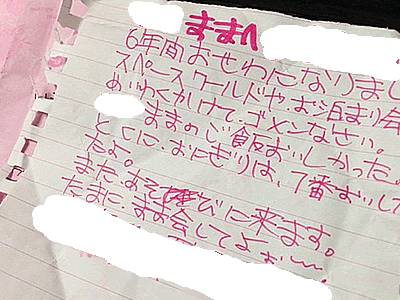 ままへ
6年間おせわになりまし
スペースワールドや、お泊り会
めいわくかけて、ゴメンなさい。
ままのご飯おいしかった
とくに、おにぎりは、7番おいし
たよ。
また、あそびに来ます。
たまに、まま会してよぉ〜